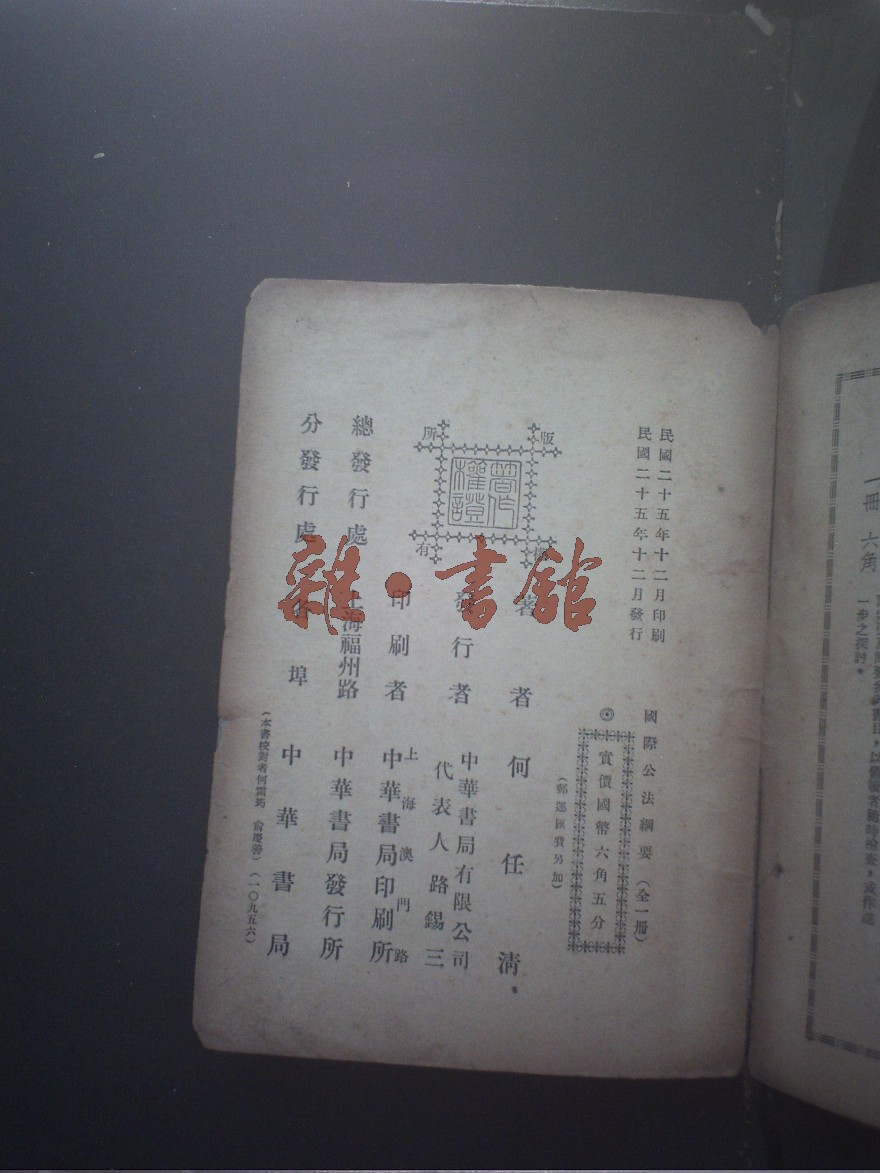 民國二十五年十二月印刷
民國二十五年十二月發行
國際公法綱要(全一册)
◎實價國幣六角五分
(郵運匯費另加)
版權所有
著作權證
著者 何任清
發行者 中華書局有限公司
代表人路錫三
印刷者 上海澳門路
中華書局印刷所
總發行處 上海福州路 中華書局發行所
分發行處 各埠 中華書局
(本書校對者何 俞慶)(一〇九五六)
雜·書館
一册 六角
以備讀者隨時檢查,或作進
一步之探討。